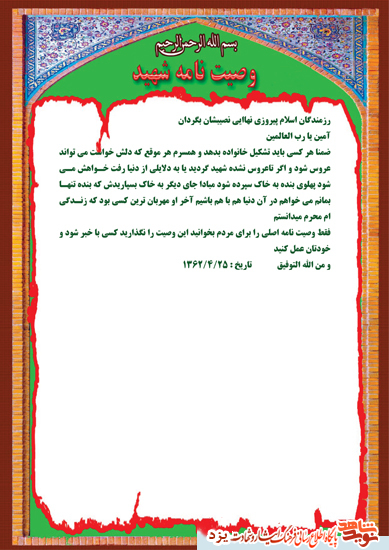 بسم الله الرحمن الرحیم
وصیت نامه شهید
رزمندگان اسلام پیروزی نهاایی نصیبشان بگردان
آمین یا رب العالمین
ضمنا هر کسی باید تشکیل خانواده بدهد و همسرم هر موقع که دلش خواست می تواند
عروس شود و اگر تاعروس نشده شهید گردید یا به دلایلی از دنیا رفت خـواهش مـی
شود پهلوی بنده به خاک سپرده شود مبادا جای دیگر به خاک بسپاریدش که بنده تنهـا
بمانم می خواهم در آن دنیا هم با هم باشیم آخر او مهربان ترین کسی بود که زنـدگی
ام محرم میدانستم
فقط وصیت نامه اصلی را برای مردم بخوانید این وصیت را نگذارید کسی با خبر شود و
خودتان عمل کنید
و من الله التوفیق تاریخ : ۱۳۶۲/۴/۲۵
نوید شاهد
پایگاه اطلاع رسانی فرهنگ ایثار و شهادت یزد